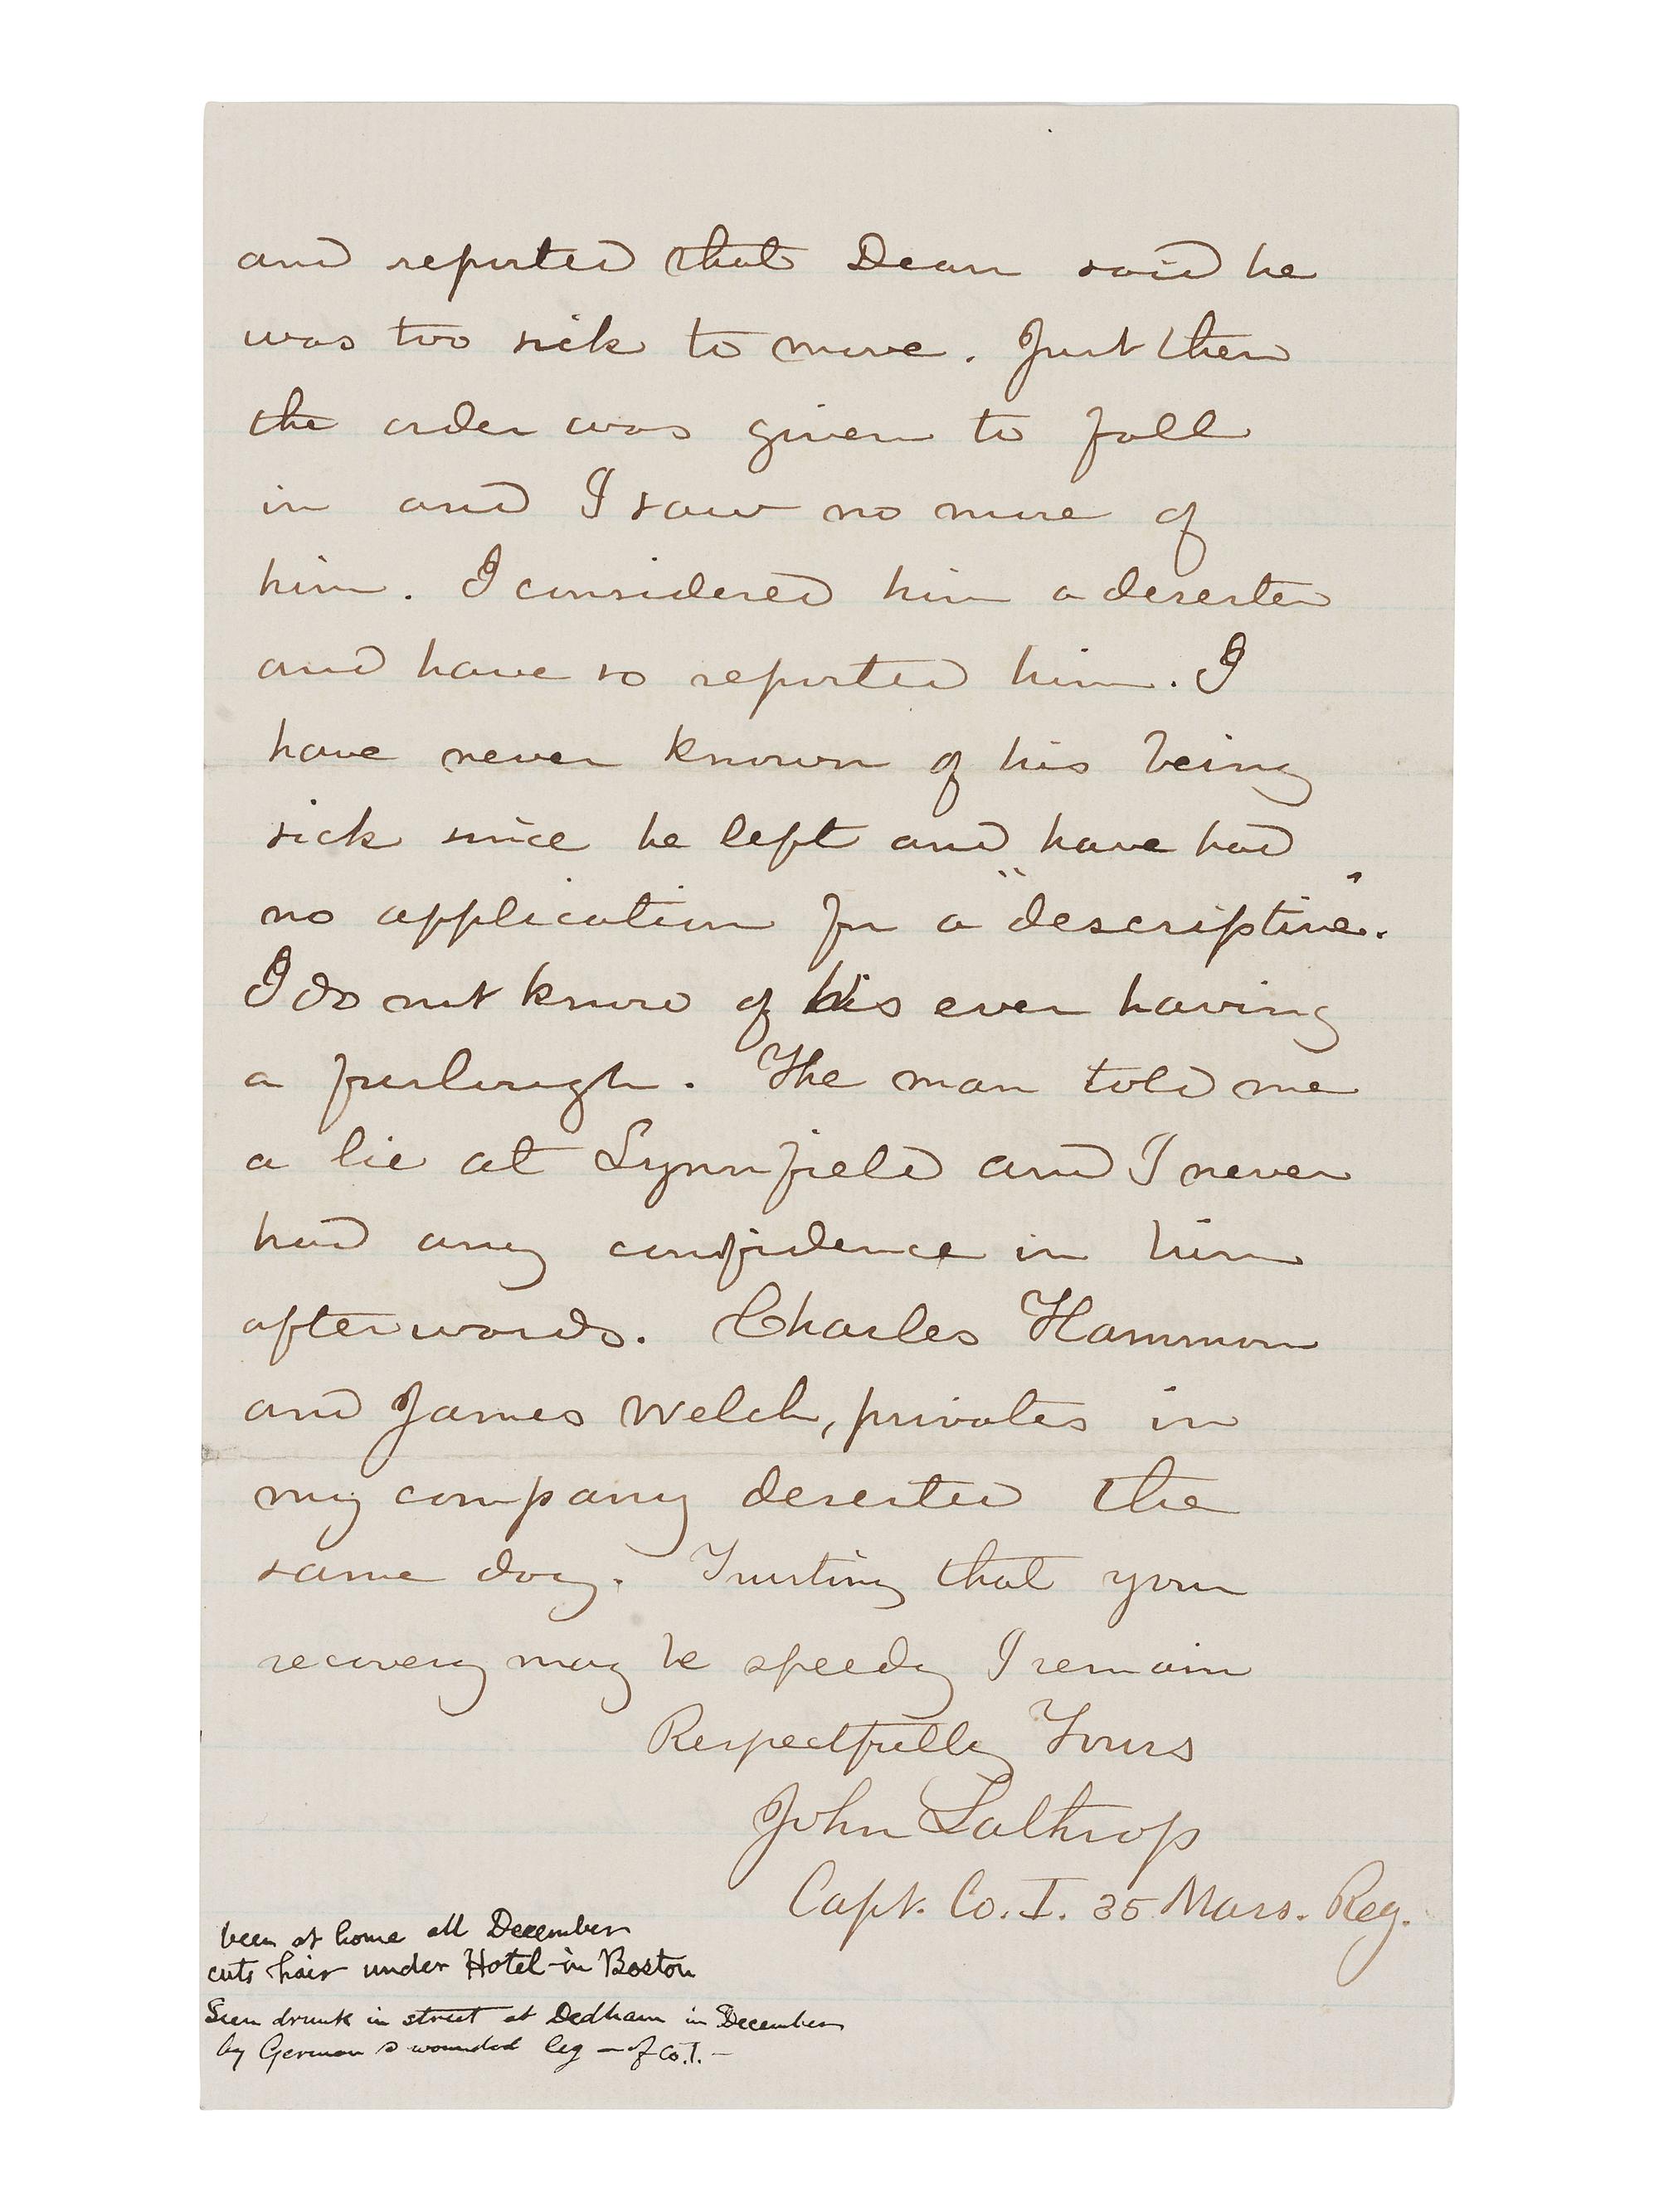 and reported that Dean said he
was too sick to move. Just then
the order was given to fall
in and I saw no more of
him. I considered him a deserter
and have so reported him. I
have never known of his being
sick since he left and have had
no application for a "descriptive".
I do not know of his ever having
a furlough. The man told me
a lie at Lynnfield and I never
had any confidence in him
afterwards. Charles Hammon
and James Welch, privates in
my company deserted the
same day. Trusting that your
recovery may be speedy I remain
Respectfully Yours
John Lathrop
Capt. Co. I. 35 Mass. Reg.
been at home all December
cuts hair under Hotel in Boston
Seen drunk in street at Dedham in December
by German wounded leg - of Co. I. -